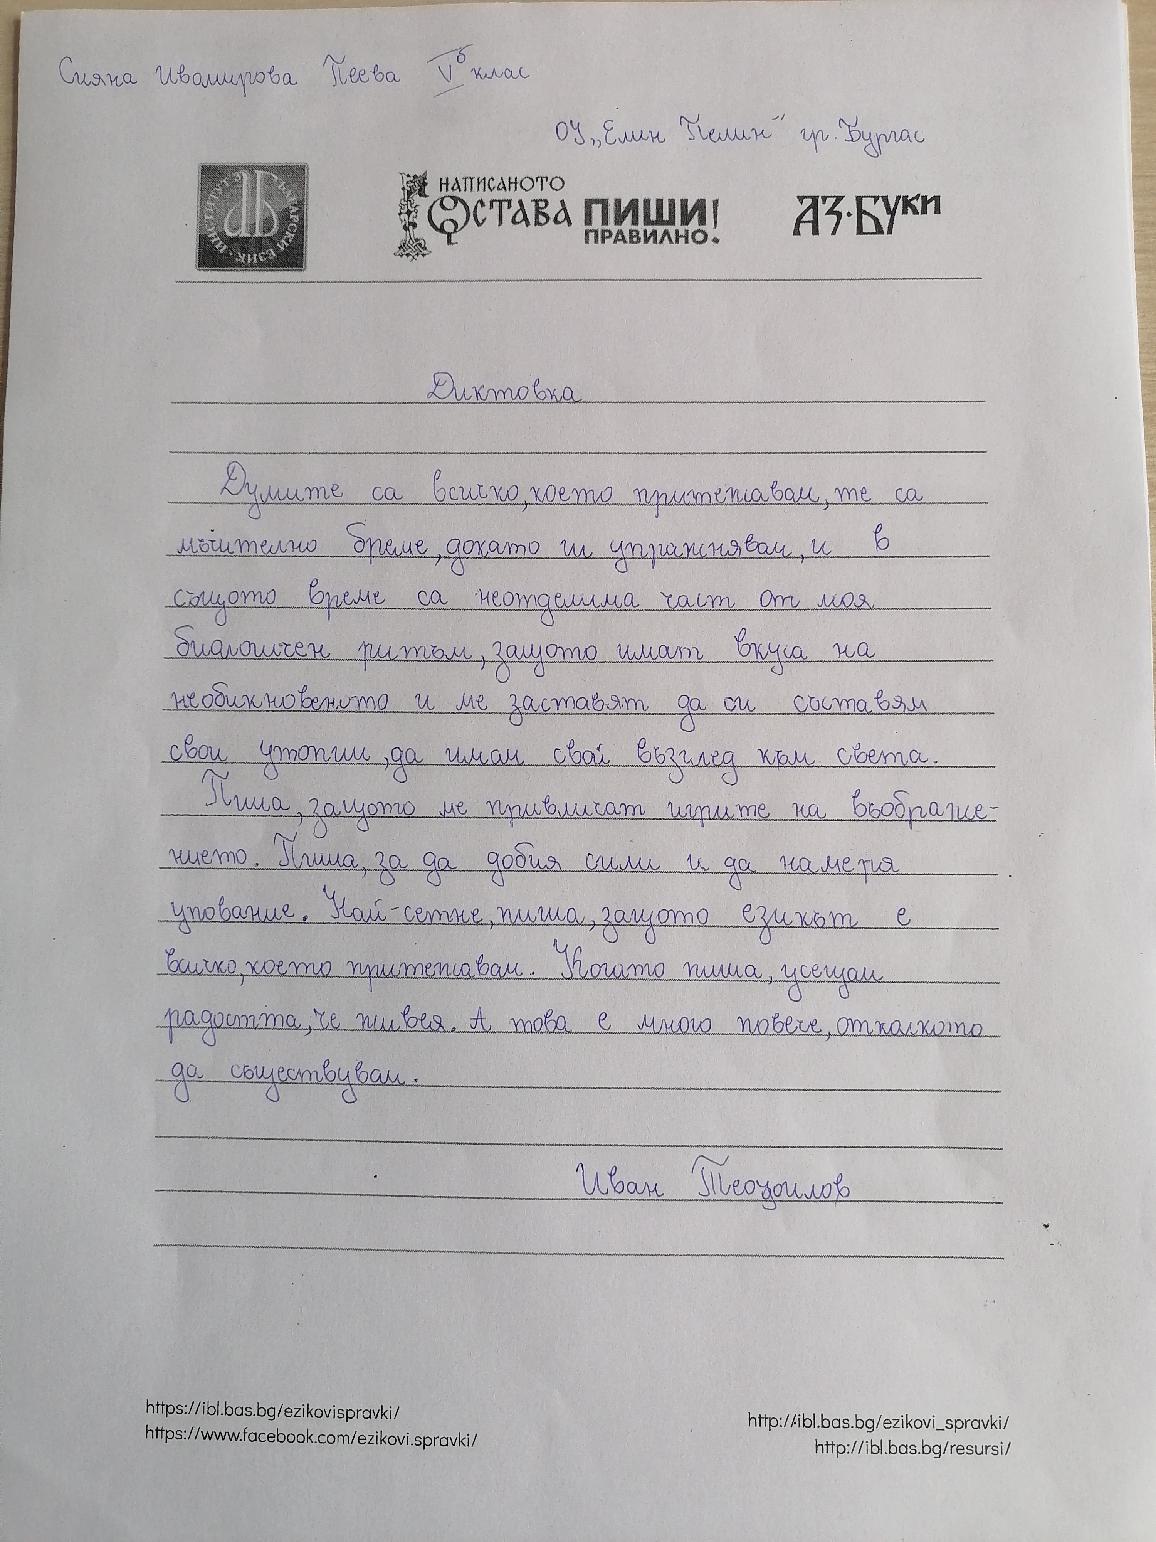 Сияна Ивамирова Пеева Vб клас
ОУ „Елин Пелин" гр. Бургас
ИНСТИТУТ ЗА БЪЛГАРСКИ ЕЗИК
НАПИСАНОТО
ОСТАВА ПИШИ!
ПРАВИЛНО.
АЗ·БУКИ
Диктовка
Думите са всичко, което притежавам, те са
мъчително бреме, докато ги упражнявам, и в
същото време са неотделима част от моя
биологичен ритъм, защото имат вкуса на
необикновеното и ме заставят да си съставям
свои утопии, да имам свой възглед към света.
Пиша, защото ме привличат игрите на въображе-
нието. Пиша, за да добия сили и да намеря
упование. Най-сетне, пиша, защото езикът е
всичко, което притежавам. Когато пиша, усещам
радостта, че живея. А това е много повече, отколкото
да съществувам.
Иван Теофилов
https://ibl.bas.bg/ezikovispravki/
https://www.facebook.com/ezikovi.spravki/
http://ibl.bas.bg/ezikovi_spravki/
http://ibl.bas.bg/resursi/